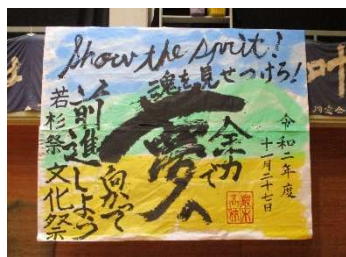 Show the spirit!
魂を見せつけろ!
令和二年度
十一月二十七日
全力で
夢へ
向かって
前進しよう
若杉祭文化祭
叶